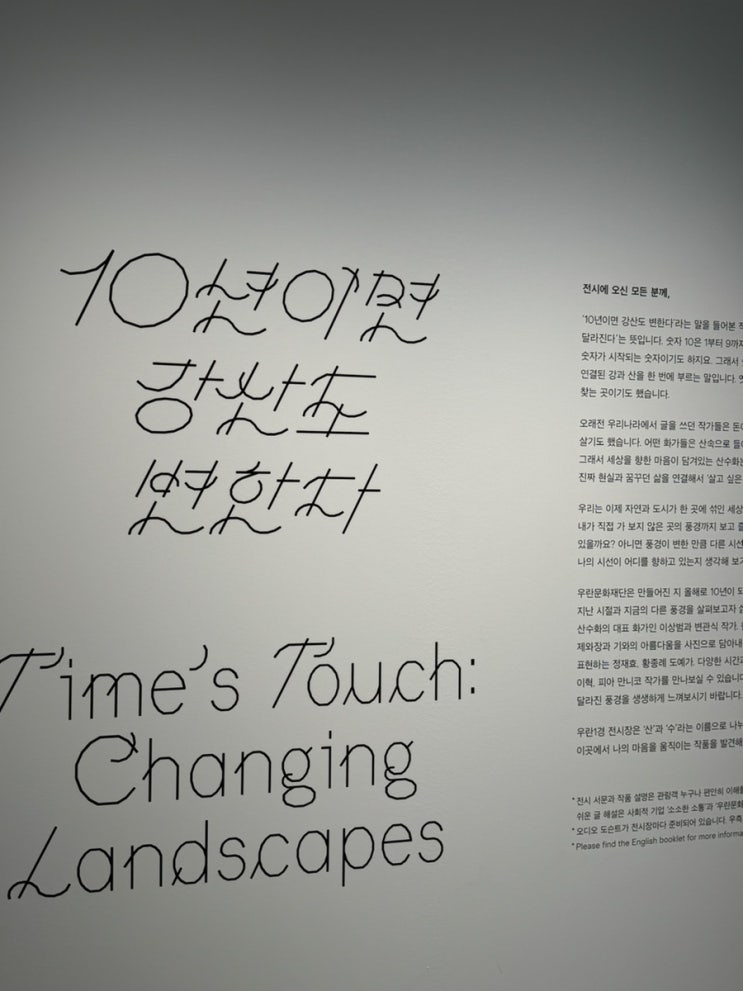 10년이면
강산도
변한다
Time's Touch:
Changing
Landscapes
전시에 오신 모든 분께,
'10년이면 강산도 변한다'라는 말을 들어본
달라진다'는 뜻입니다. 숫자 10은 1부터 9까지
숫자가 시작되는 숫자이기도 하지요. 그래서
연결된 강과 산을 한 번에 부르는 말입니다.
찾는 곳이기도 했습니다.
오래전 우리나라에서 글을 쓰던 작가들은
살기도 했습니다. 어떤 화가들은 산속으로
그래서 세상을 향한 마음이 담겨있는 산수화는
진짜 현실과 꿈꾸던 삶을 연결해서 '살고 싶은
우리는 이제 자연과 도시가 한 곳에 섞인
내가 직접 가 보지 않은 곳의 풍경까지 보고
있을까요? 아니면 풍경이 변한 만큼 다른
나의 시선이 어디를 향하고 있는지 생각해
우란문화재단은 만들어진 지 올해로 10년이
지난 시절과 지금의 다른 풍경을 살펴보고자
산수화의 대표 화가인 이상범과 변관식 작가.
제와장과 기와의 아름다움을 사진으로
표현하는 정재효, 황종례 도예가. 다양한
이혁, 피아 만니코 작가를 만나보실 수 있습니다.
달라진 풍경을 생생하게 느껴보시기 바랍니다.
우란1경 전시장은 '산'과 '수'라는 이름으로
이곳에서 나의 마음을 움직이는 작품을
* 전시 서문과 작품 설명은 관람객 누구나 편안히
쉬운 글 해설은 사회적 기업 '소소한 소통'과
* 오디오 도슨트가 전시장마다 준비되어 있습니다.
* Please find the English booklet for more